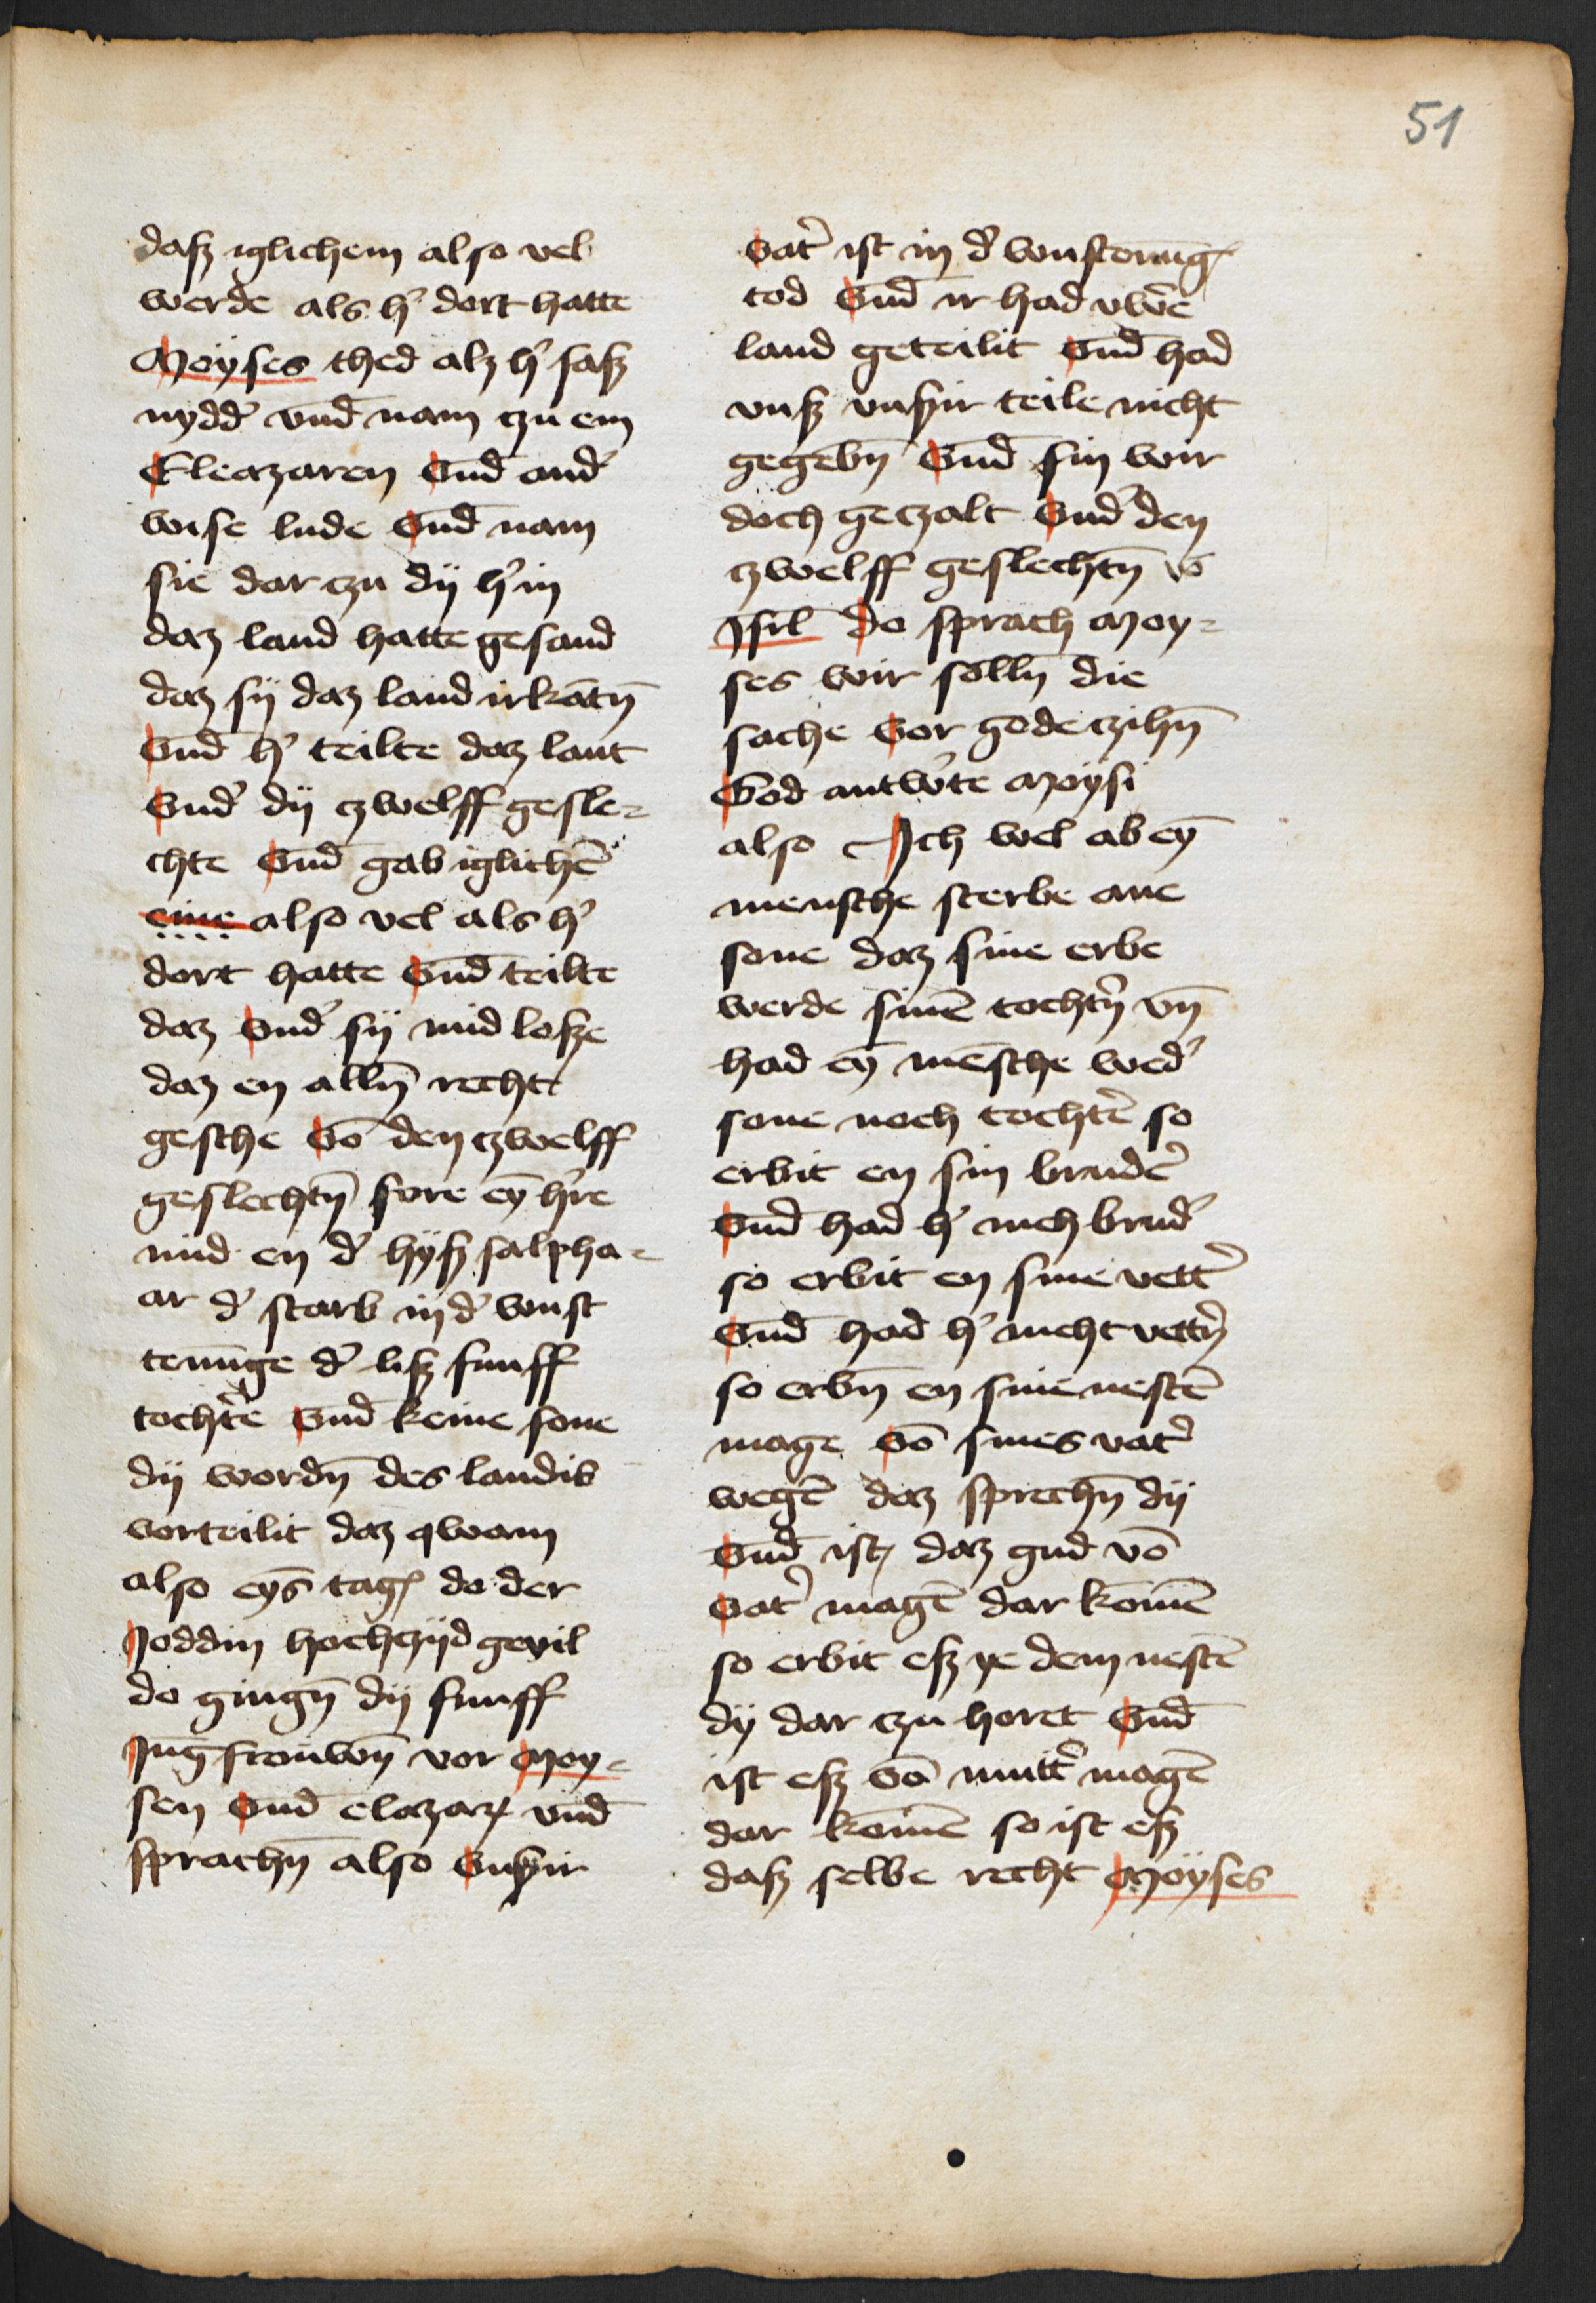 51
dasz iglichem also vel
werde als h' dort hatte
Moÿses thed alz h' sasz
nydd' vnd̄ nam czu em
Eleazaren Vnd̄ and'
wise lude Vnd̄ nam
sie dar czu dÿ h' in
daz land hatte gesand
daz sÿ daz land irkātn̄
Vnd̄ h' teilte daz lant
Vnd' dÿ czwelff gesle=
chte Vnd̄ gab iglichē
eine also vel als h'
dort hatte Vnd̄ teilte
daz Vnd' sÿ mid losze
daz en alln̄ recht
gesche Vō den czwelff
geslechtn̄ fore eȳ h're
mid en d' hÿsz salpha=
ar d' starb in d' wust
tenūge d' lisz funff
tocht'e Vnd̄ keine sone
dÿ wordn̄ des landis
vorteilit daz qwam
also eȳs tag do der
Joddin hochczijd gevil
do gingn̄ dÿ funff
Jūgfrouwn̄ vor Moy=
sen Vnd̄ elazar vnd̄
sprachn̄ also Vnszir
Vat' ist in d' wusterūg
tod Vnd̄ ir had vwē
land geteilit Vnd̄ had
vnsz vnszir teile nicht
gegebn̄ Vnd̄ sin wir
doch geczalt Vnd' den
czwelff geslechtn̄ vō
Jsrl̄ do sprach Moy=
ses wir solln̄ die
sache Vor gode czihn̄
God antw'te Moÿsi
also Jch wel ab eȳ
mensche sterbe ane
sone daz sine erbe
werde sinē tocht'n vn̄
had eȳ mēsche wed'
sone noch tocht'e so
erbit en sin brud'e
Vnd̄ had h' nich brud'
so erbit en sine vett'
Vnd̄ had h' nicht vett'n
so erbn̄ en sine nestē
mage Vō sines vat'
wegē daz sprechn̄ dÿ
Vnd̄ ist daz gud vō
Vat' magē dar komē
so erbit esz ye dem nestē
dÿ dar czu horet Vnd̄
ist esz Vō mutt' magē
dar komē so ist esz
dasz selbe recht Moÿses